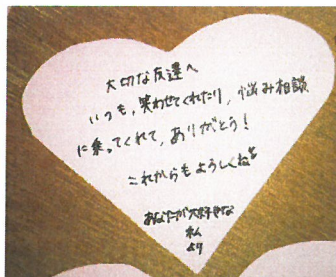 大切な友達へ
いつも,笑わせてくれたり,悩み相談
に乗ってくれて,ありがとう!
これからもよろしくね
あなたが大好きな
私
より